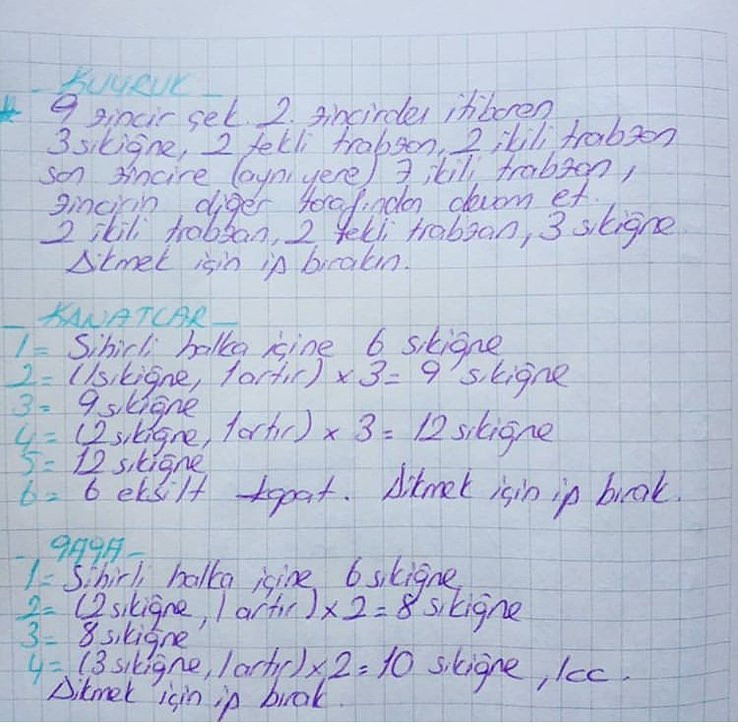 - KUYRUK -
9 zincir çek. 2. zincirden itibaren
3 sıkiğne, 2 tekli trabzan, 2 ikili trabzan
son zincire (aynı yere) 7 ikili trabzan,
zincirin diğer tarafından devam et.
2 ikili trabzan, 2 tekli trabzan, 3 sıkiğne
Dikmek için ip bırakın.
- KANATLAR -
1= Sihirli halka içine 6 sıkiğne
2= (1sıkiğne, 1 artır) x 3= 9 sıkiğne
3= 9 sıkiğne
4= (2 sıkiğne, 1artır) x 3= 12 sıkiğne
5= 12 sıkiğne
6= 6 eksilt kapat. Dikmek için ip bırak.
- GAGA -
1= Sihirli halka içine 6 sıkiğne
2= (2 sıkiğne, 1 artır) x 2= 8 sıkiğne
3= 8 sıkiğne
4= (3 sıkiğne, 1 artır) x 2= 10 sıkiğne, 1cc.
Dikmek için ip bırak.